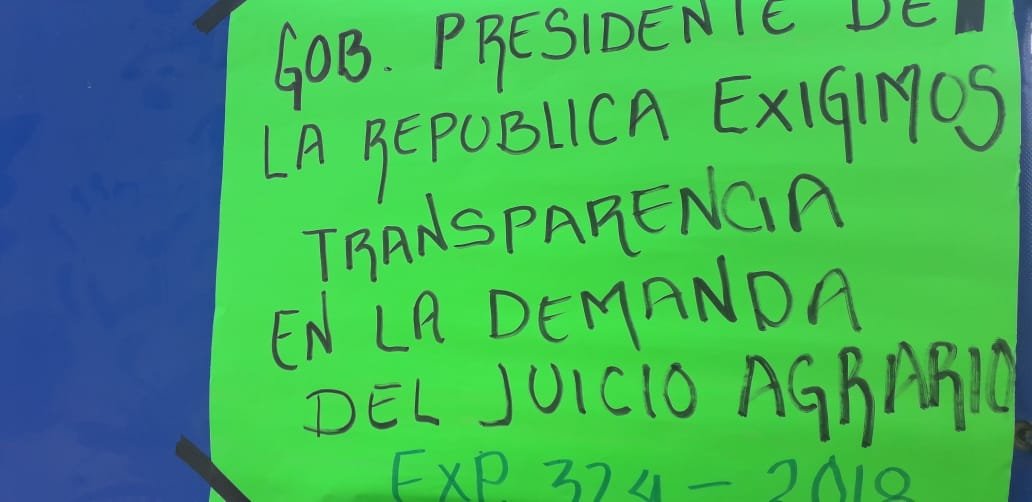 GOB. PRESIDENTE DE
LA REPUBLICA EXIGIMOS
TRANSPARENCIA
EN LA DEMANDA
DEL JUICIO AGRARIO
EXP 324 - 2018